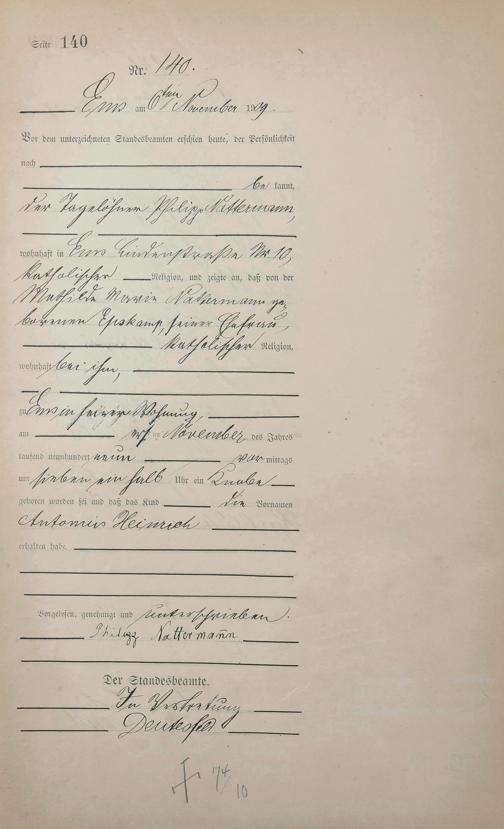 Seite 140
Nr. 140.
Ems am 6ten November 1909.
Vor dem unterzeichneten Standesbeamten erschien heute, der Persönlichkeit
nach
be kannt,
der Tagelöhner Philipp Nattermann,
wohnhaft in Ems Lindenstraße Nr 10,
katholischer Religion, und zeigte an, daß von der
Mathilde Maria Nattermann ge-
borenen Epskamp, seiner Ehefrau,
katholischer Religion,
wohnhaft bei ihm,
zu Ems in seiner Wohnung,
am ersten November des Jahres
tausend neunhundert neun vor mittags
um sieben ein halb Uhr ein Knabe
geboren worden sei und daß das Kind die Vornamen
Antonius Heinrich
erhalten habe.
Vorgelesen, genehmigt und unterschrieben.
Philipp Nattermann
Der Standesbeamte.
In Vertretung
74
10